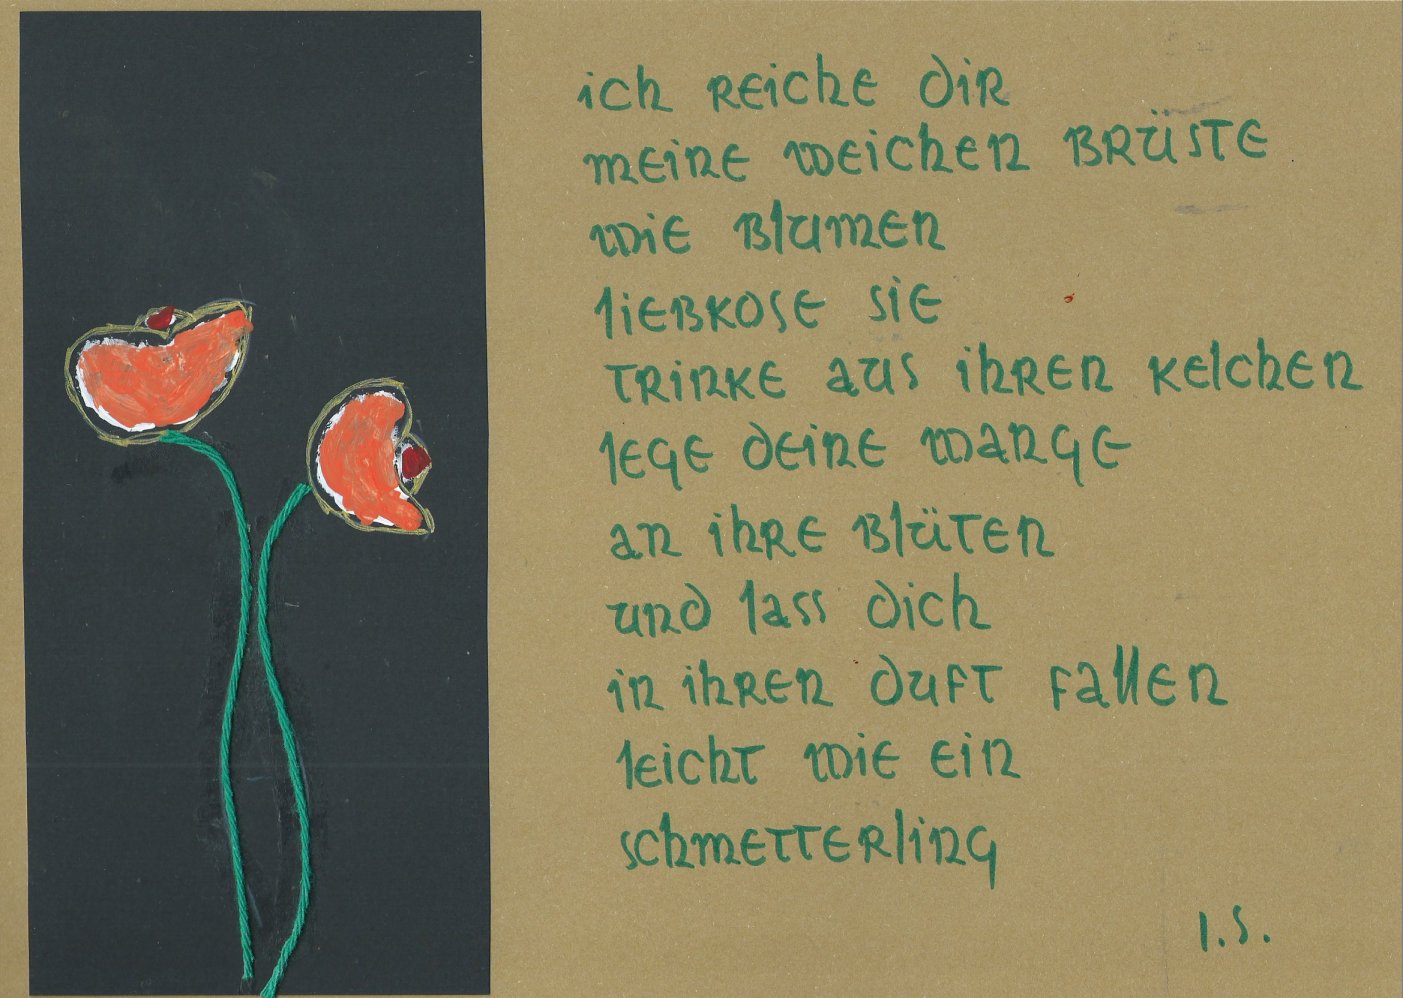 ich reiche dir
meine weichen Brüste
wie Blumen
liebkose sie
trinke aus ihren kelchen
lege deine wange
an ihre Blüten
und lass dich
in ihren duft fallen
leicht wie ein
schmetterling
I.S.